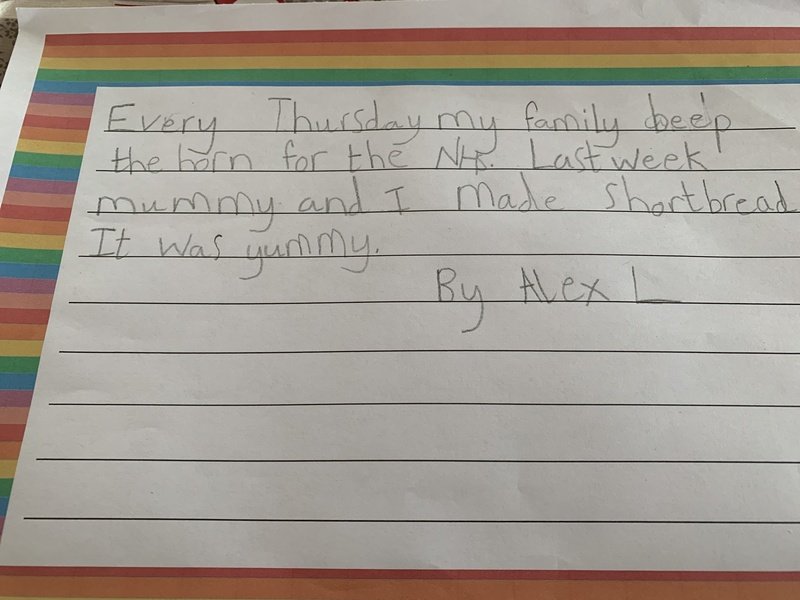 Every Thursday my family beep
the horn for the NHS. Last week
mummy and I made shortbread
It was yummy.
By Alex L